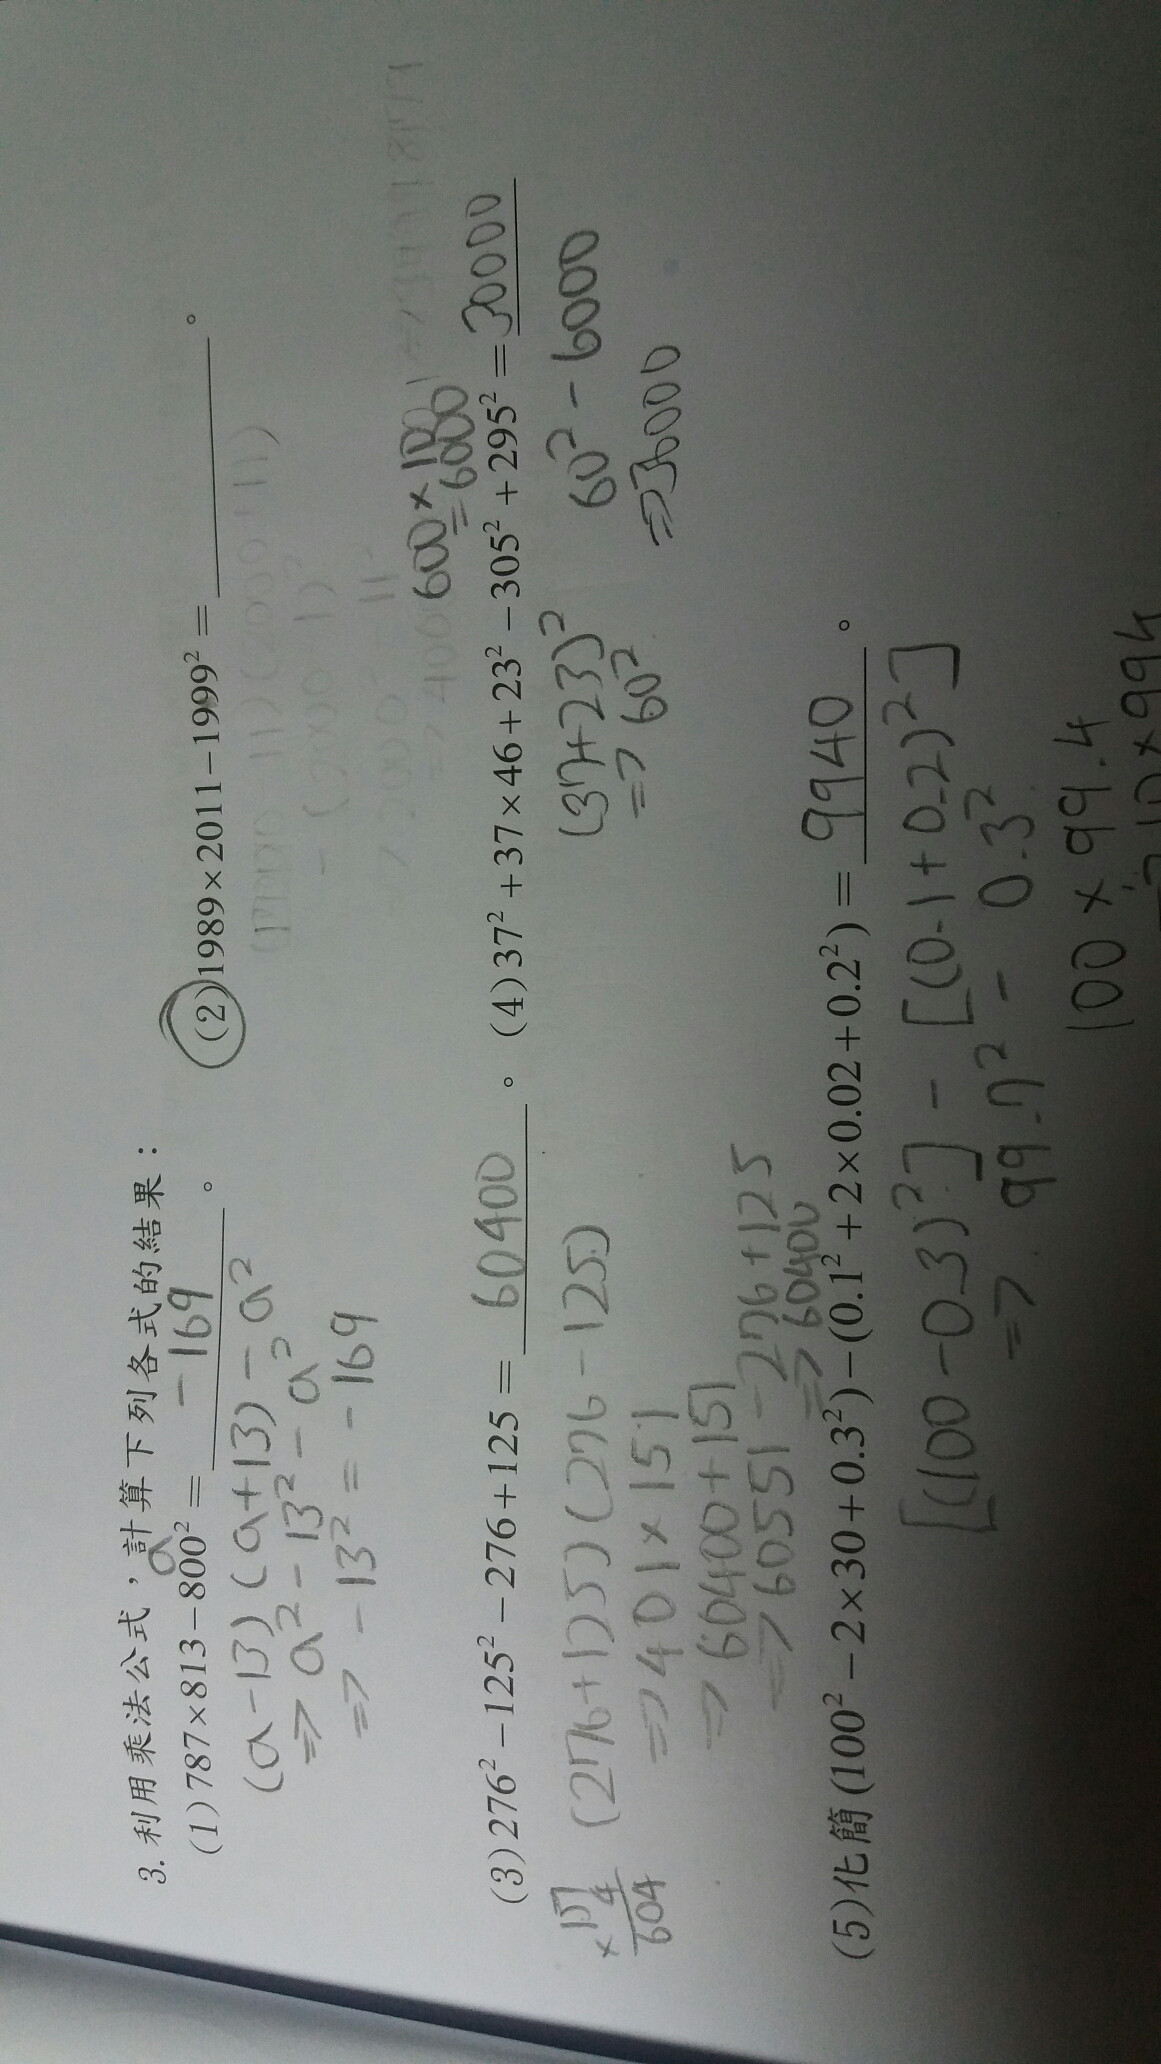 3. 利用乘法公式，計算下列各式的結果：
(1) 787×813−800² = −169 。
a
(a−13)(a+13)−a²
⇒ a²−13²−a²
⇒ −13² = −169
(2) 1989×2011−1999² = ______ 。
(3) 276²−125²−276+125 = 60400 。
(276+125)(276−125)
⇒ 401×151
⇒ 60400+151
⇒ 60551−276+125
⇒ 60400
151
× 4
604
(4) 37²+37×46+23²−305²+295² = 30000
600×10
=6000
(37+23)²
⇒ 60²
60²−6000
⇒ 36000
(5) 化簡 (100²−2×30+0.3²)−(0.1²+2×0.02+0.2²) = 9940 。
[(100−0.3)²]−[(0.1+0.2)²]
⇒ 99.7²−0.3²
100×99.4
10×994